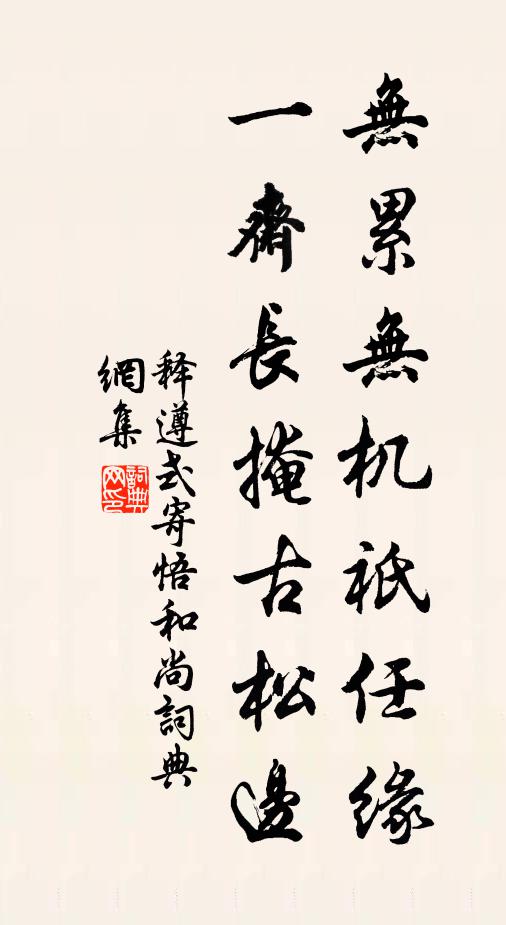 無累無机祇任緣
一齊長掩古松邊
释遵式寄悟和尚詞典
網集
詞典
网印